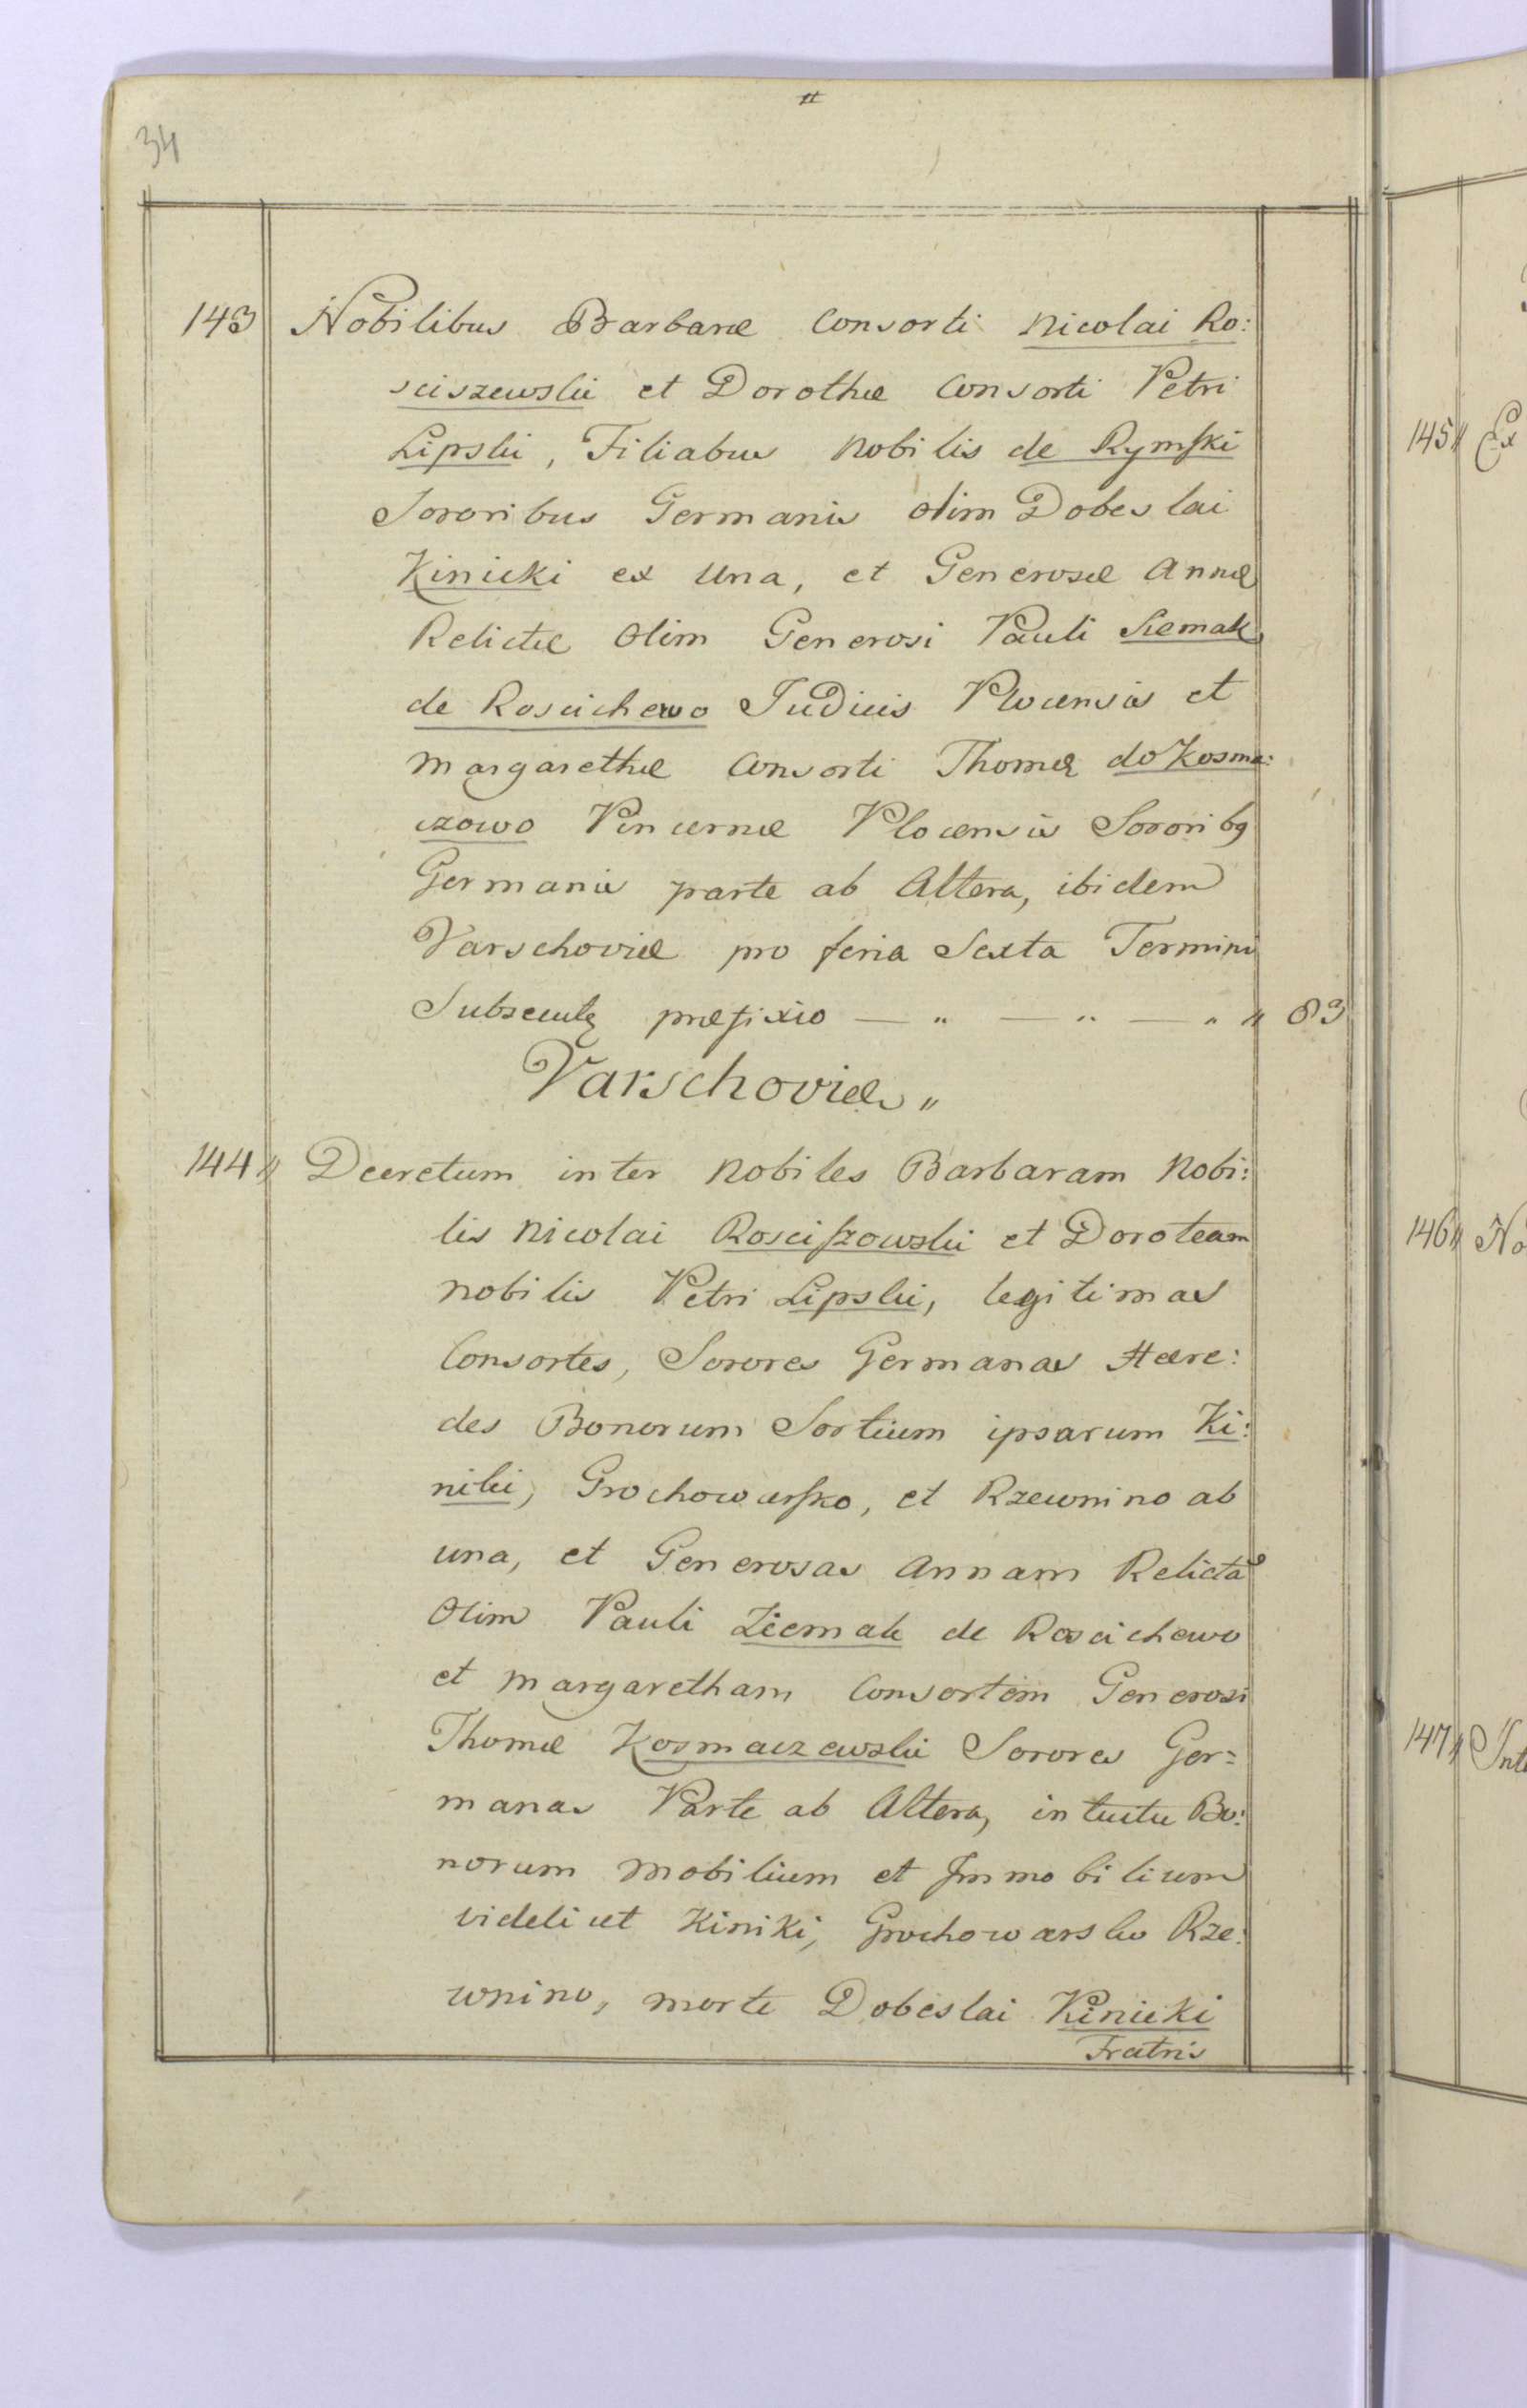 34
143 Nobilibus Barbaræ Consorti Nicolai Ro:
sciszewski et Dorotheæ Consorti Petri
Lipski, Filiabus Nobilis de Rymski
Sororibus Germanis olim Dobeslai
Kinicki ex Una, et Generosæ Annæ
Relictæ Olim Generosi Pauli Siemak
de Roscichewo Judicis Plocensis et
Margarethæ Consorti Thomæ do Kosma:
czowo Pincernæ Plocensis Sororibq
Germanis parte ab Altera, ibidem
Varschoviæ pro feria Sexta Termini
Subsecutę præfixio — " — " — " " 83
Varschoviæ "
144 " Decretum inter Nobiles Barbaram Nobi:
lis Nicolai Rosciszowski et Doroteam
nobilis Petri Lipski, legitimas
Consortes, Sorores Germanas Hære:
des Bonorum Sortium ipsarum Ki:
niki, Grochowarsko, et Rzewnino ab
una, et Generosas Annam Relictã
Olim Pauli Ziemak de Roscichewo
et Margaretham Consortem Generosi
Thomæ Kosmaczewski Sorores Ger=
manas Parte ab Altera, intuitu Bo:
norum Mobilium et Immobilium
videlicet Kiniki, Grochowarsko Rze:
wnino, morte Dobeslai Kinicki
Fratris
145 " Ex
146 " No
147 " Int